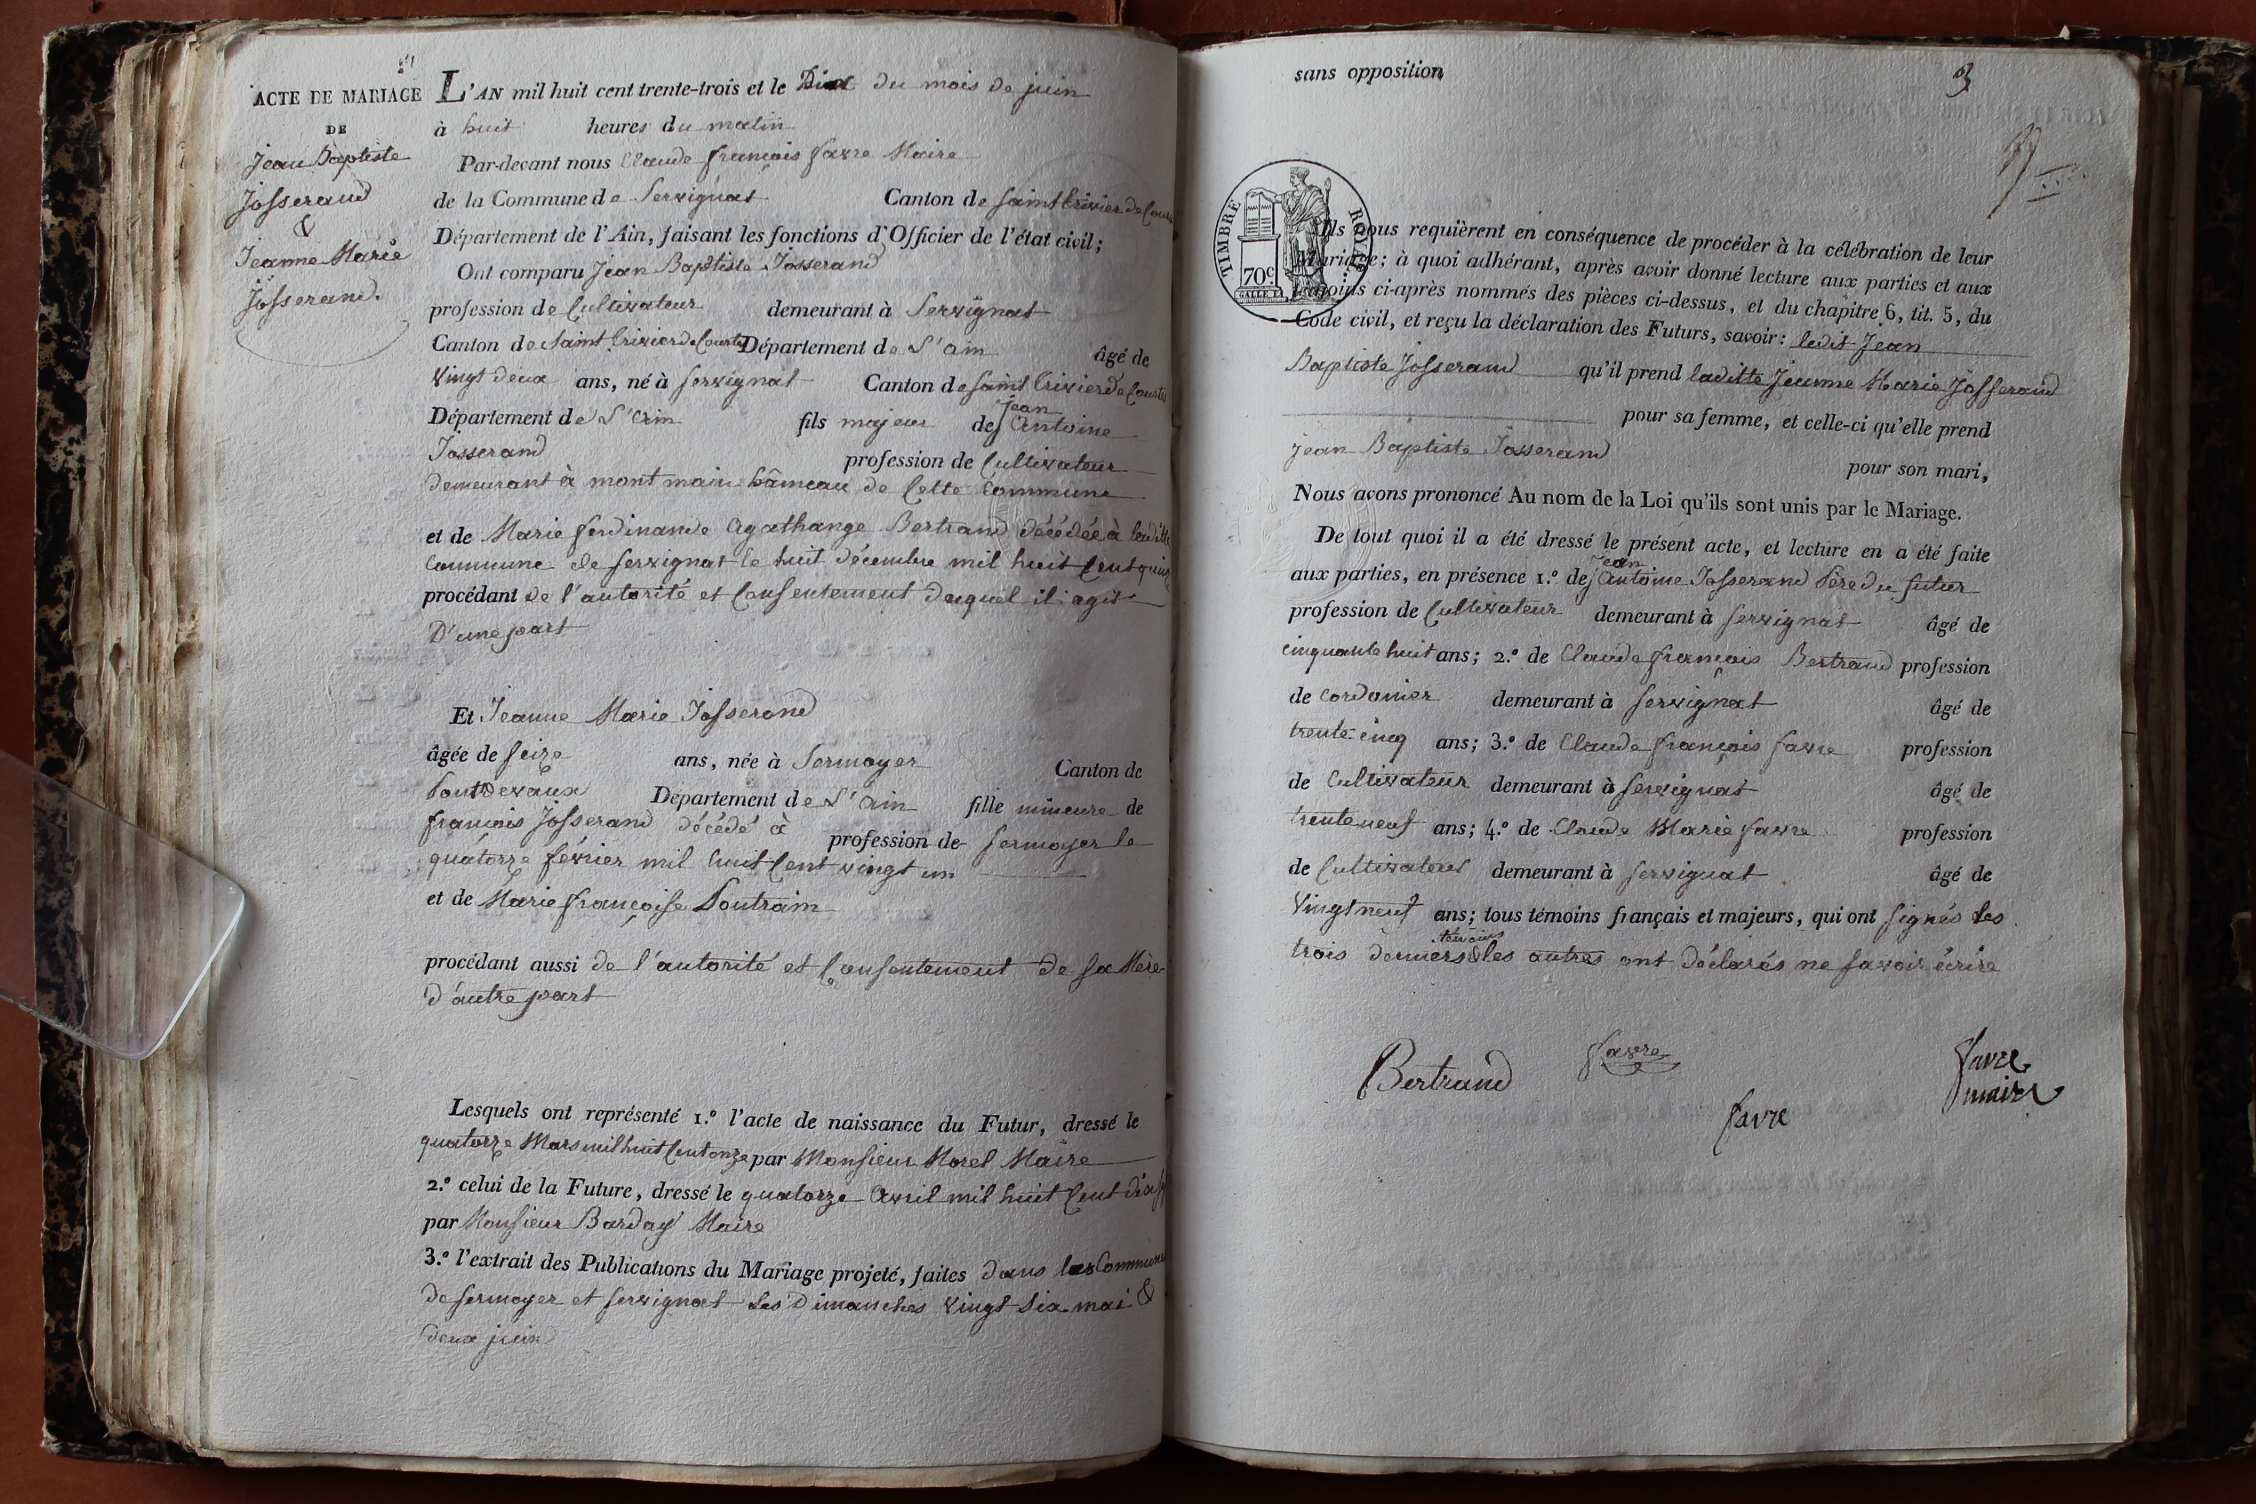 ACTE DE MARIAGE
DE
Jean Baptiste
Josserand
&
Jeanne Marie
Josserand.
L'AN mil huit cent trente-trois et le Dix du mois de juin
à huit heures du matin
Par-devant nous Claude françois favre Maire
de la Commune de Servignat Canton de Saint Trivier de Courtes
Département de l'Ain, faisant les fonctions d'Officier de l'état civil;
Ont comparu Jean Baptiste Josserand
profession de Cultivateur demeurant à Servignat
Canton de Saint Trivier de Courtes Département de L'ain âgé de
vingt deux ans, né à servignat Canton de Saint Trivier de Courtes
Département de L'ain fils majeur de Jean Antoine
Josserand profession de Cultivateur
demeurant à montmain hâmeau de Cette Commune
et de Marie ferdinande Agathange Bertrand décédée à laditte
Commune de servignat le huit décembre mil huit Cent quinze
procédant de l'autorité et Consentement duquel il agit
D'une part
Et Jeanne Marie Josserand
âgée de seize ans, née à Sermoyer Canton de
Pont Devaux Département de L'ain fille mineure de
françois Josserand décédé à profession de Sermoyer le
quatorze février mil huit Cent vingt un
et de Marie françoise Poutrain
procédant aussi de l'autorité et Consentement de sa Mère
d'autre part
Lesquels ont représenté 1.º l'acte de naissance du Futur, dressé le
quatorze Mars mil huit Cent onze par Monsieur Morel Maire
2.º celui de la Future, dressé le quatorze Avril mil huit Cent dix sept
par Monsieur Barday Maire
3.º l'extrait des Publications du Mariage projeté, faites dans les Communes
de Sermoyer et servignat Les Dimanches vingt Six mai &
deux juin
sans opposition
3
TIMBRE ROYAL
70c
Ils nous requièrent en conséquence de procéder à la célébration de leur
Mariage; à quoi adhérant, après avoir donné lecture aux parties et aux
témoins ci-après nommés des pièces ci-dessus, et du chapitre 6, tit. 5, du
Code civil, et reçu la déclaration des Futurs, savoir: ledit Jean
Baptiste Josserand qu'il prend laditte Jeanne Marie Josserand
pour sa femme, et celle-ci qu'elle prend
Jean Baptiste Josserand
pour son mari,
Nous avons prononcé Au nom de la Loi qu'ils sont unis par le Mariage.
De tout quoi il a été dressé le présent acte, et lecture en a été faite
aux parties, en présence 1.º de Jean antoine Josserand Père du futur
profession de Cultivateur demeurant à servignat âgé de
cinquante huit ans; 2.º de Claude françois Bertrand profession
de cordonier demeurant à servignat âgé de
trente cinq ans; 3.º de Claude françois favre profession
de Cultivateur demeurant à servignat âgé de
trente neuf ans; 4.º de Claude Marie favre profession
de Cultivateur demeurant à servignat âgé de
Vingt neuf ans; tous témoins français et majeurs, qui ont signés les
trois derniers témoins & les autres ont déclarés ne savoir écrire
Bertrand favre favre
maire
favre